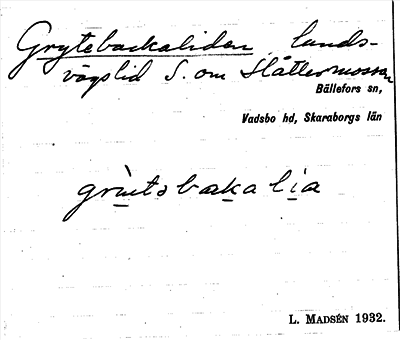 Grytebackaliden, lands-
vägslid S. om Slåttermossen
Bällefors sn,
Vadsbo hd, Skaraborgs län
L. MADSÉN 1932.